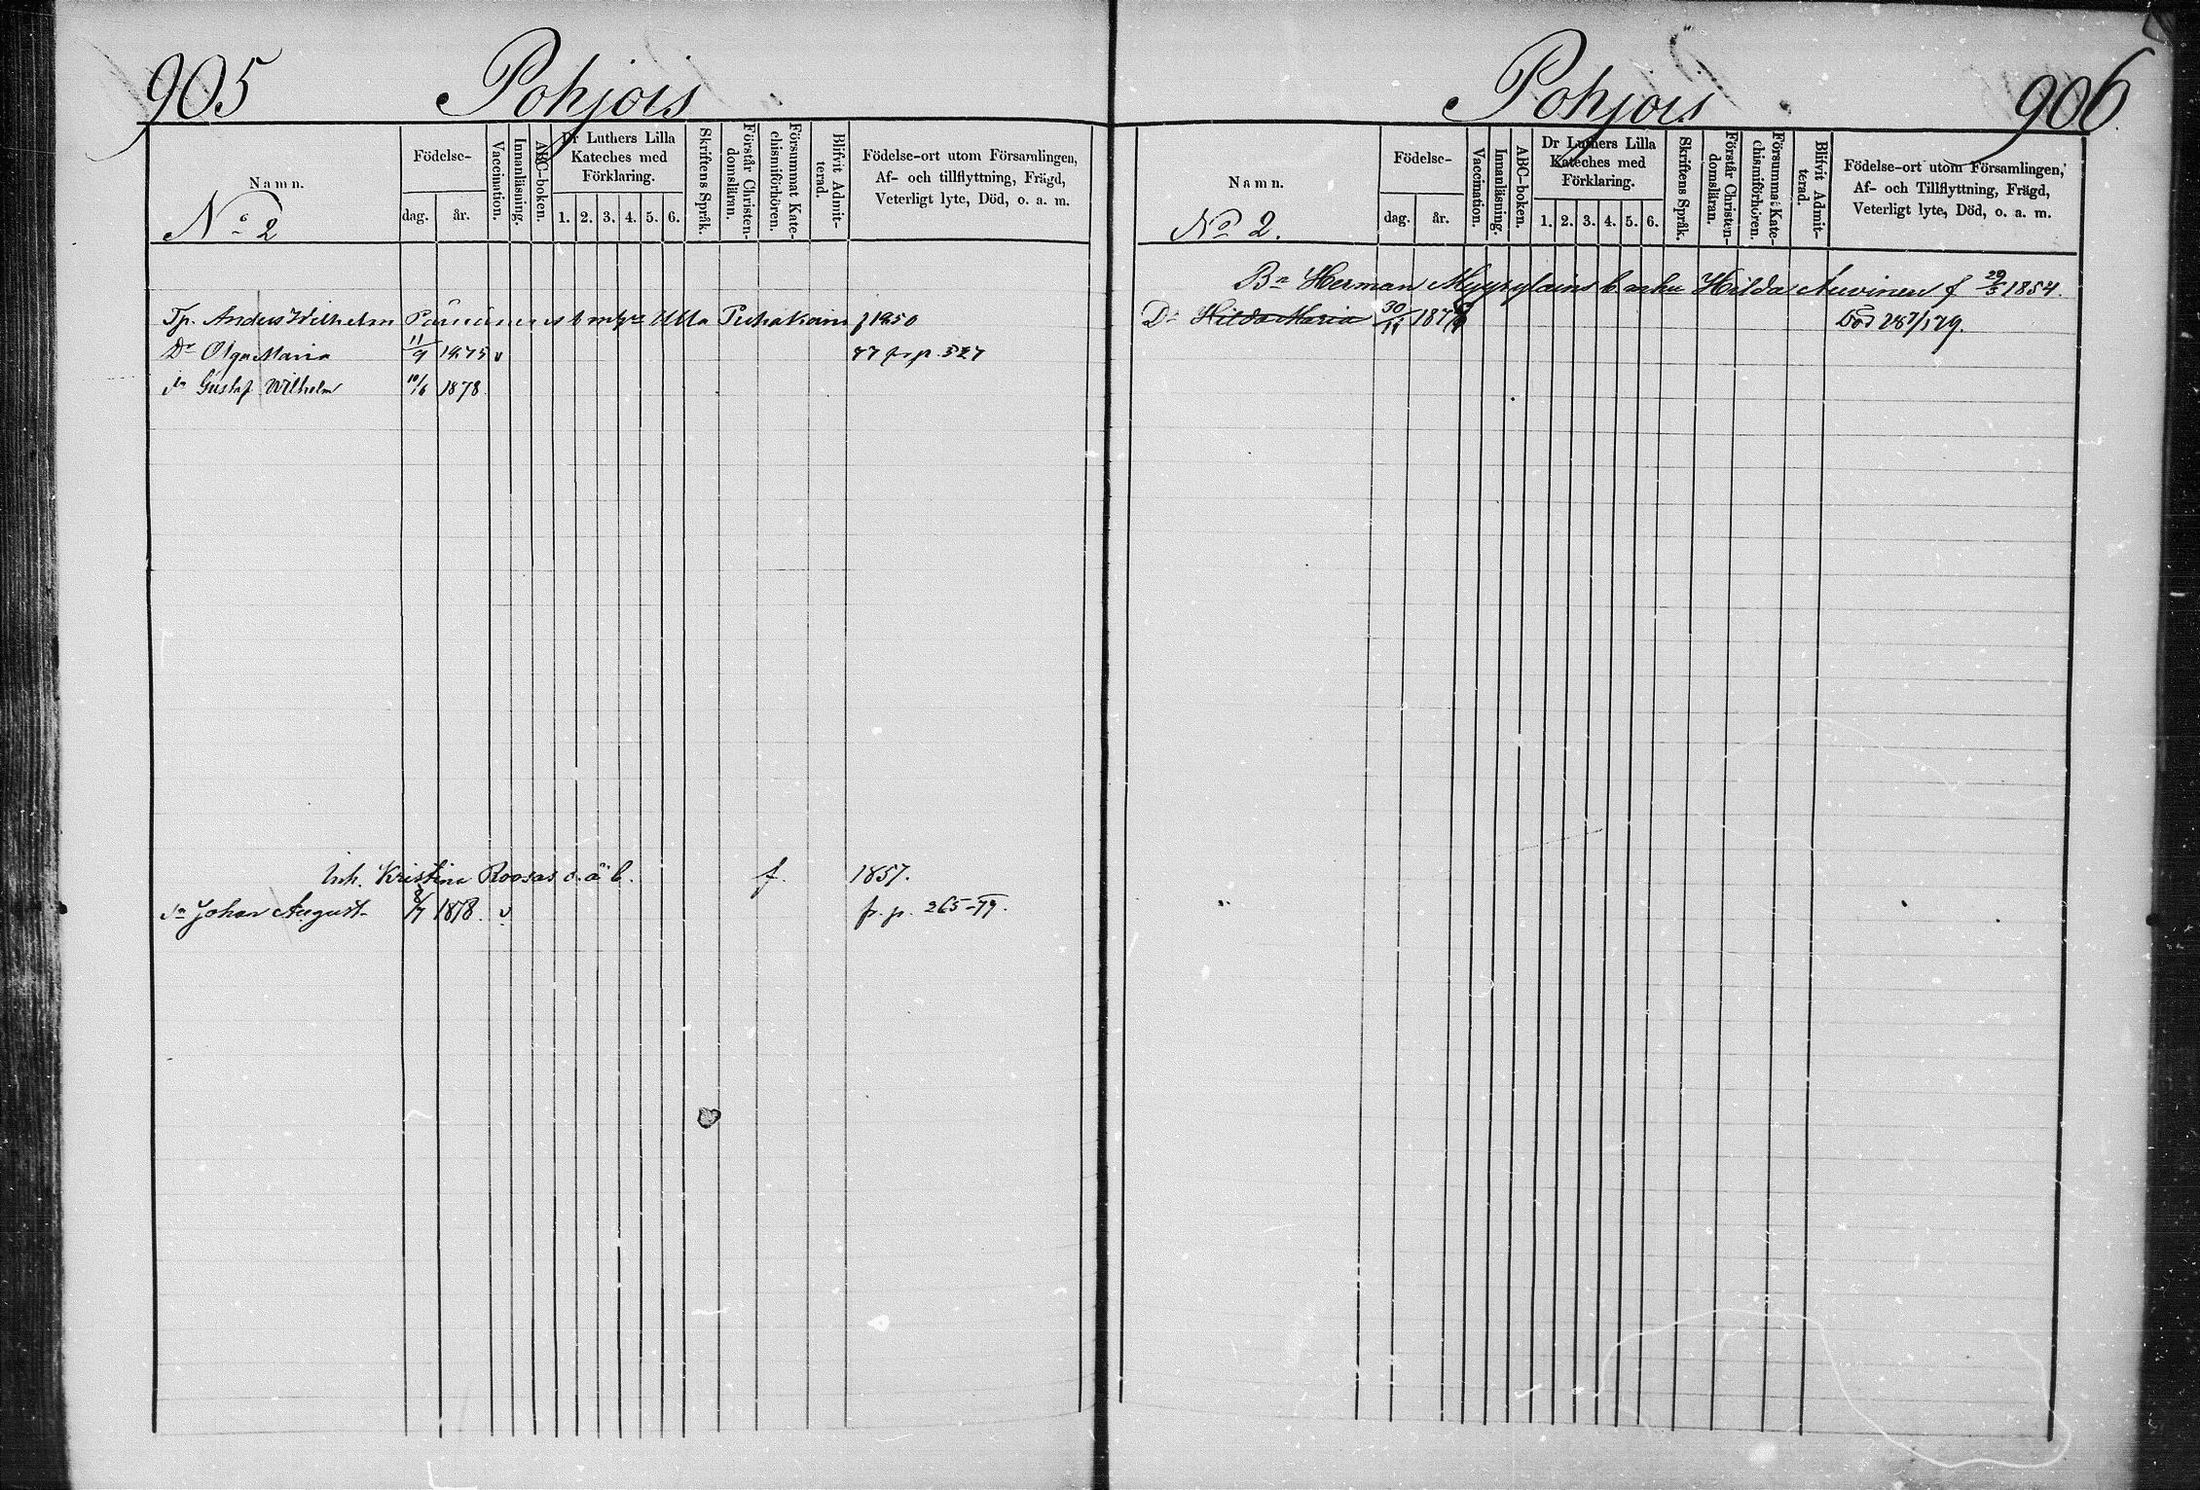 905 Pohjois
Namn.
No 2
Födelse-
dag. år.
Vaccination.
Innanläsning.
ABC-boken.
Dr Luthers Lilla
Kateches med
Förklaring.
1. 2. 3. 4. 5. 6.
Skriftens Språk.
Förstår Christen-
domsläran.
Försummat Kate-
chismiförhören.
Blifvit Admit-
terad.
Födelse-ort utom Församlingen,
Af- och tillflyttning, Frägd,
Veterligt lyte, Död, o. a. m.
Tp. Anders Wilhelm Ulla f 1850
Dr Olga Maria 11/9 1875 v 77 fr. p. 527
Sn Gustaf Wilhelm 10/6 1878
Inh. Kristina Roosas o. ä b. f. 1857.
Sn Johan August 8/7 1878. v fr. p. 265-79.
Pohjois 906
Namn.
No 2.
Födelse-
dag. år.
Vaccination.
Innanläsning.
ABC-boken.
Dr Luthers Lilla
Kateches med
Förklaring.
1. 2. 3. 4. 5. 6.
Skriftens Språk.
Förstår Christen-
domsläran.
Försummat Kate-
chismiförhören.
Blifvit Admit-
terad.
Födelse-ort utom Församlingen,
Af- och Tillflyttning, Frägd,
Veterligt lyte, Död, o. a. m.
Bn Herman Myyryläins b. enka Hilda Auvinen f 29/3 1854.
Dr Hilda Maria 30/11 1878 Död 28/1 79.